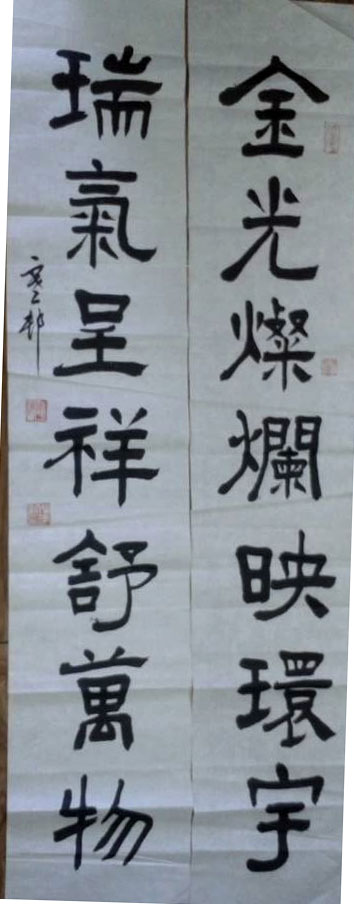 金光燦爛映環宇
瑞氣呈祥舒萬物